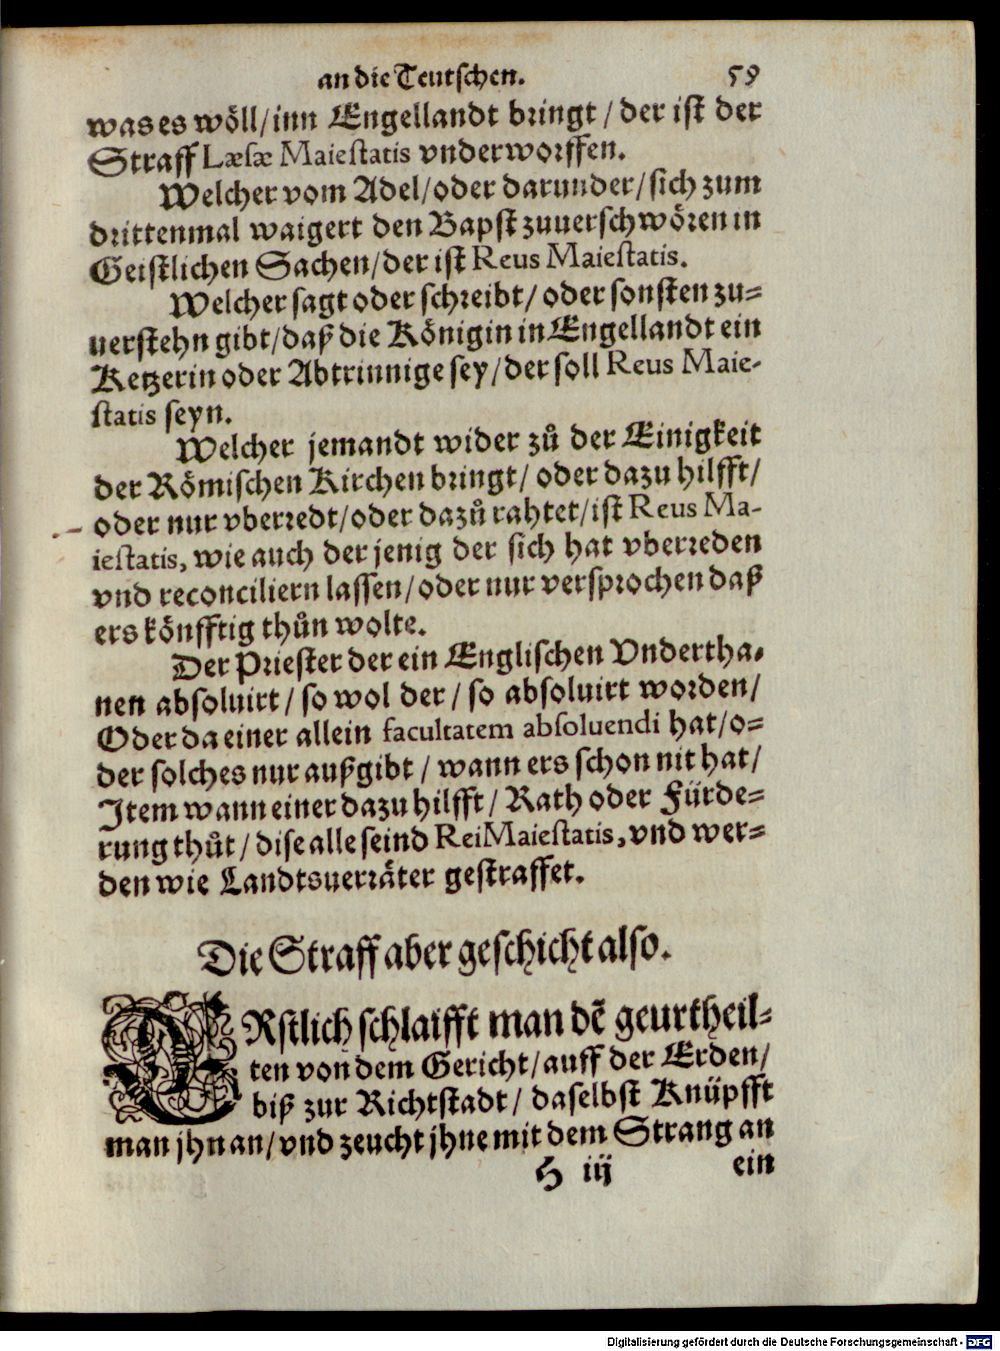 an die Teutschen. 59
was es wöll/ inn Engellandt bringt / der ist der
Straff Læsæ Maiestatis vnderworffen.
Welcher vom Adel/oder darunder/sich zum
drittenmal waigert den Bapst zuuerschwören in
Geistlichen Sachen/der ist Reus Maiestatis.
Welcher sagt oder schreibt/ oder sonsten zu-
uerstehn gibt/daß die Königin in Engellandt ein
Ketzerin oder Abtrinnige sey/der soll Reus Maie-
statis seyn.
Welcher jemandt wider zů der Einigkeit
der Römischen Kirchen bringt/ oder dazu hilfft/
oder nur vberredt/oder dazů rahtet/ist Reus Ma-
iestatis, wie auch der jenig der sich hat vberreden
vnd reconciliern lassen/oder nur versprochen daß
ers könfftig thůn wolte.
Der Priester der ein Englischen Vndertha-
nen absoluirt / so wol der / so absoluirt worden/
Oder da einer allein facultatem absoluendi hat/o-
der solches nur außgibt / wann ers schon nit hat/
Item wann einer dazu hilfft/ Rath oder Fürde-
rung thůt / dise alle seind Rei Maiestatis, vnd wer-
den wie Landtsuerräter gestraffet.
Die Straff aber geschicht also.
ERstlich schlaifft man dē geurtheil-
ten von dem Gericht/auff der Erden/
biß zur Richtstadt/ daselbst Knüpfft
man jhn an/vnd zeucht jhne mit dem Strang an
H iij ein
Digitalisierung gefördert durch die Deutsche Forschungsgemeinschaft - DFG